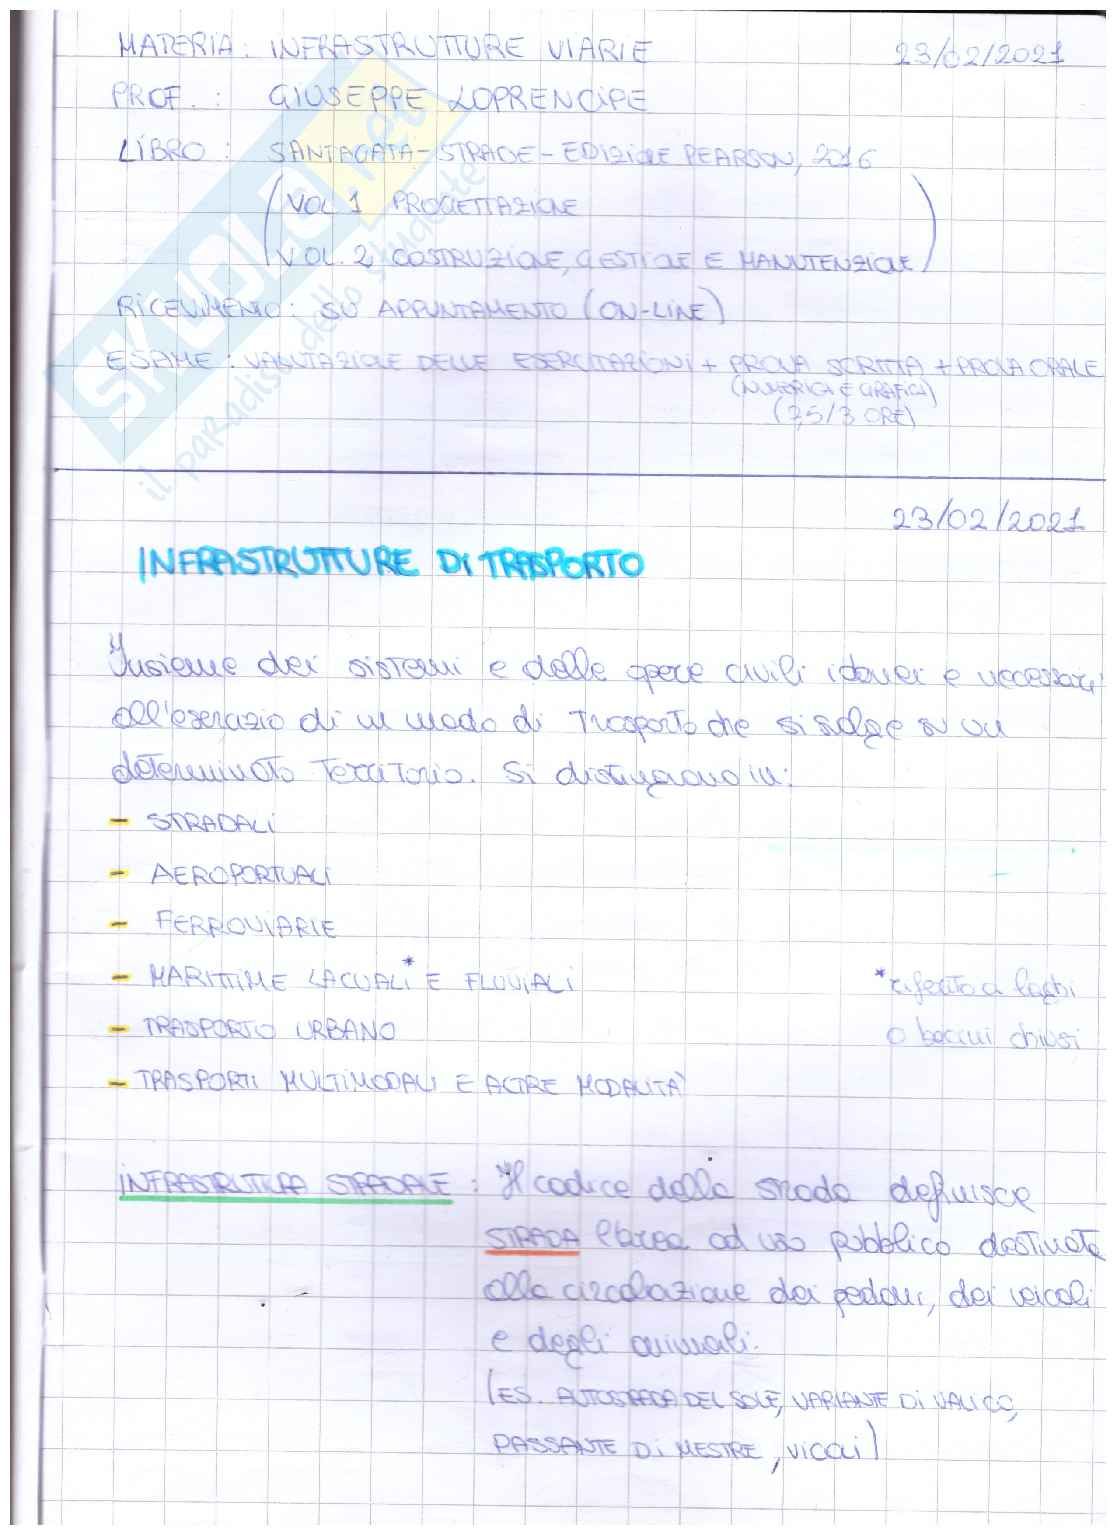 MATERIA: INFRASTRUTTURE VIARIE 23/02/2021
PROF.: GIUSEPPE LOPRENCIPE
LIBRO: SANTAGATA-STRADE-EDIZIONE PEARSON, 2016
(VOL 1 PROGETTAZIONE
VOL. 2 COSTRUZIONE, GESTIONE E MANUTENZIONE)
RICEVIMENTO: SU APPUNTAMENTO (ON-LINE)
ESAME: VALUTAZIONE DELLE ESERCITAZIONI + PROVA SCRITTA + PROVA ORALE
(NUMERICA E GRAFICA)
(2,5/3 ORE)
SKUOLA.net
il paradiso dello studente
23/02/2021
INFRASTRUTTURE DI TRASPORTO
Insieme dei sistemi e delle opere civili idonei e necessari
all'esercizio di un modo di trasporto che si svolge su un
determinato territorio. Si distinguono in:
- STRADALI
- AEROPORTUALI
- FERROVIARIE
- MARITTIME LACUALI* E FLUVIALI *riferito a laghi
- TRASPORTO URBANO o bacini chiusi
- TRASPORTI MULTIMODALI E ALTRE MODALITÀ
INFRASTRUTTURA STRADALE: Il codice della strada definisce
STRADA l'area ad uso pubblico destinata
alla circolazione dei pedoni, dei veicoli
e degli animali.
(ES. AUTOSTRADA DEL SOLE, VARIANTE DI VALICO,
PASSANTE DI MESTRE, vicoli)